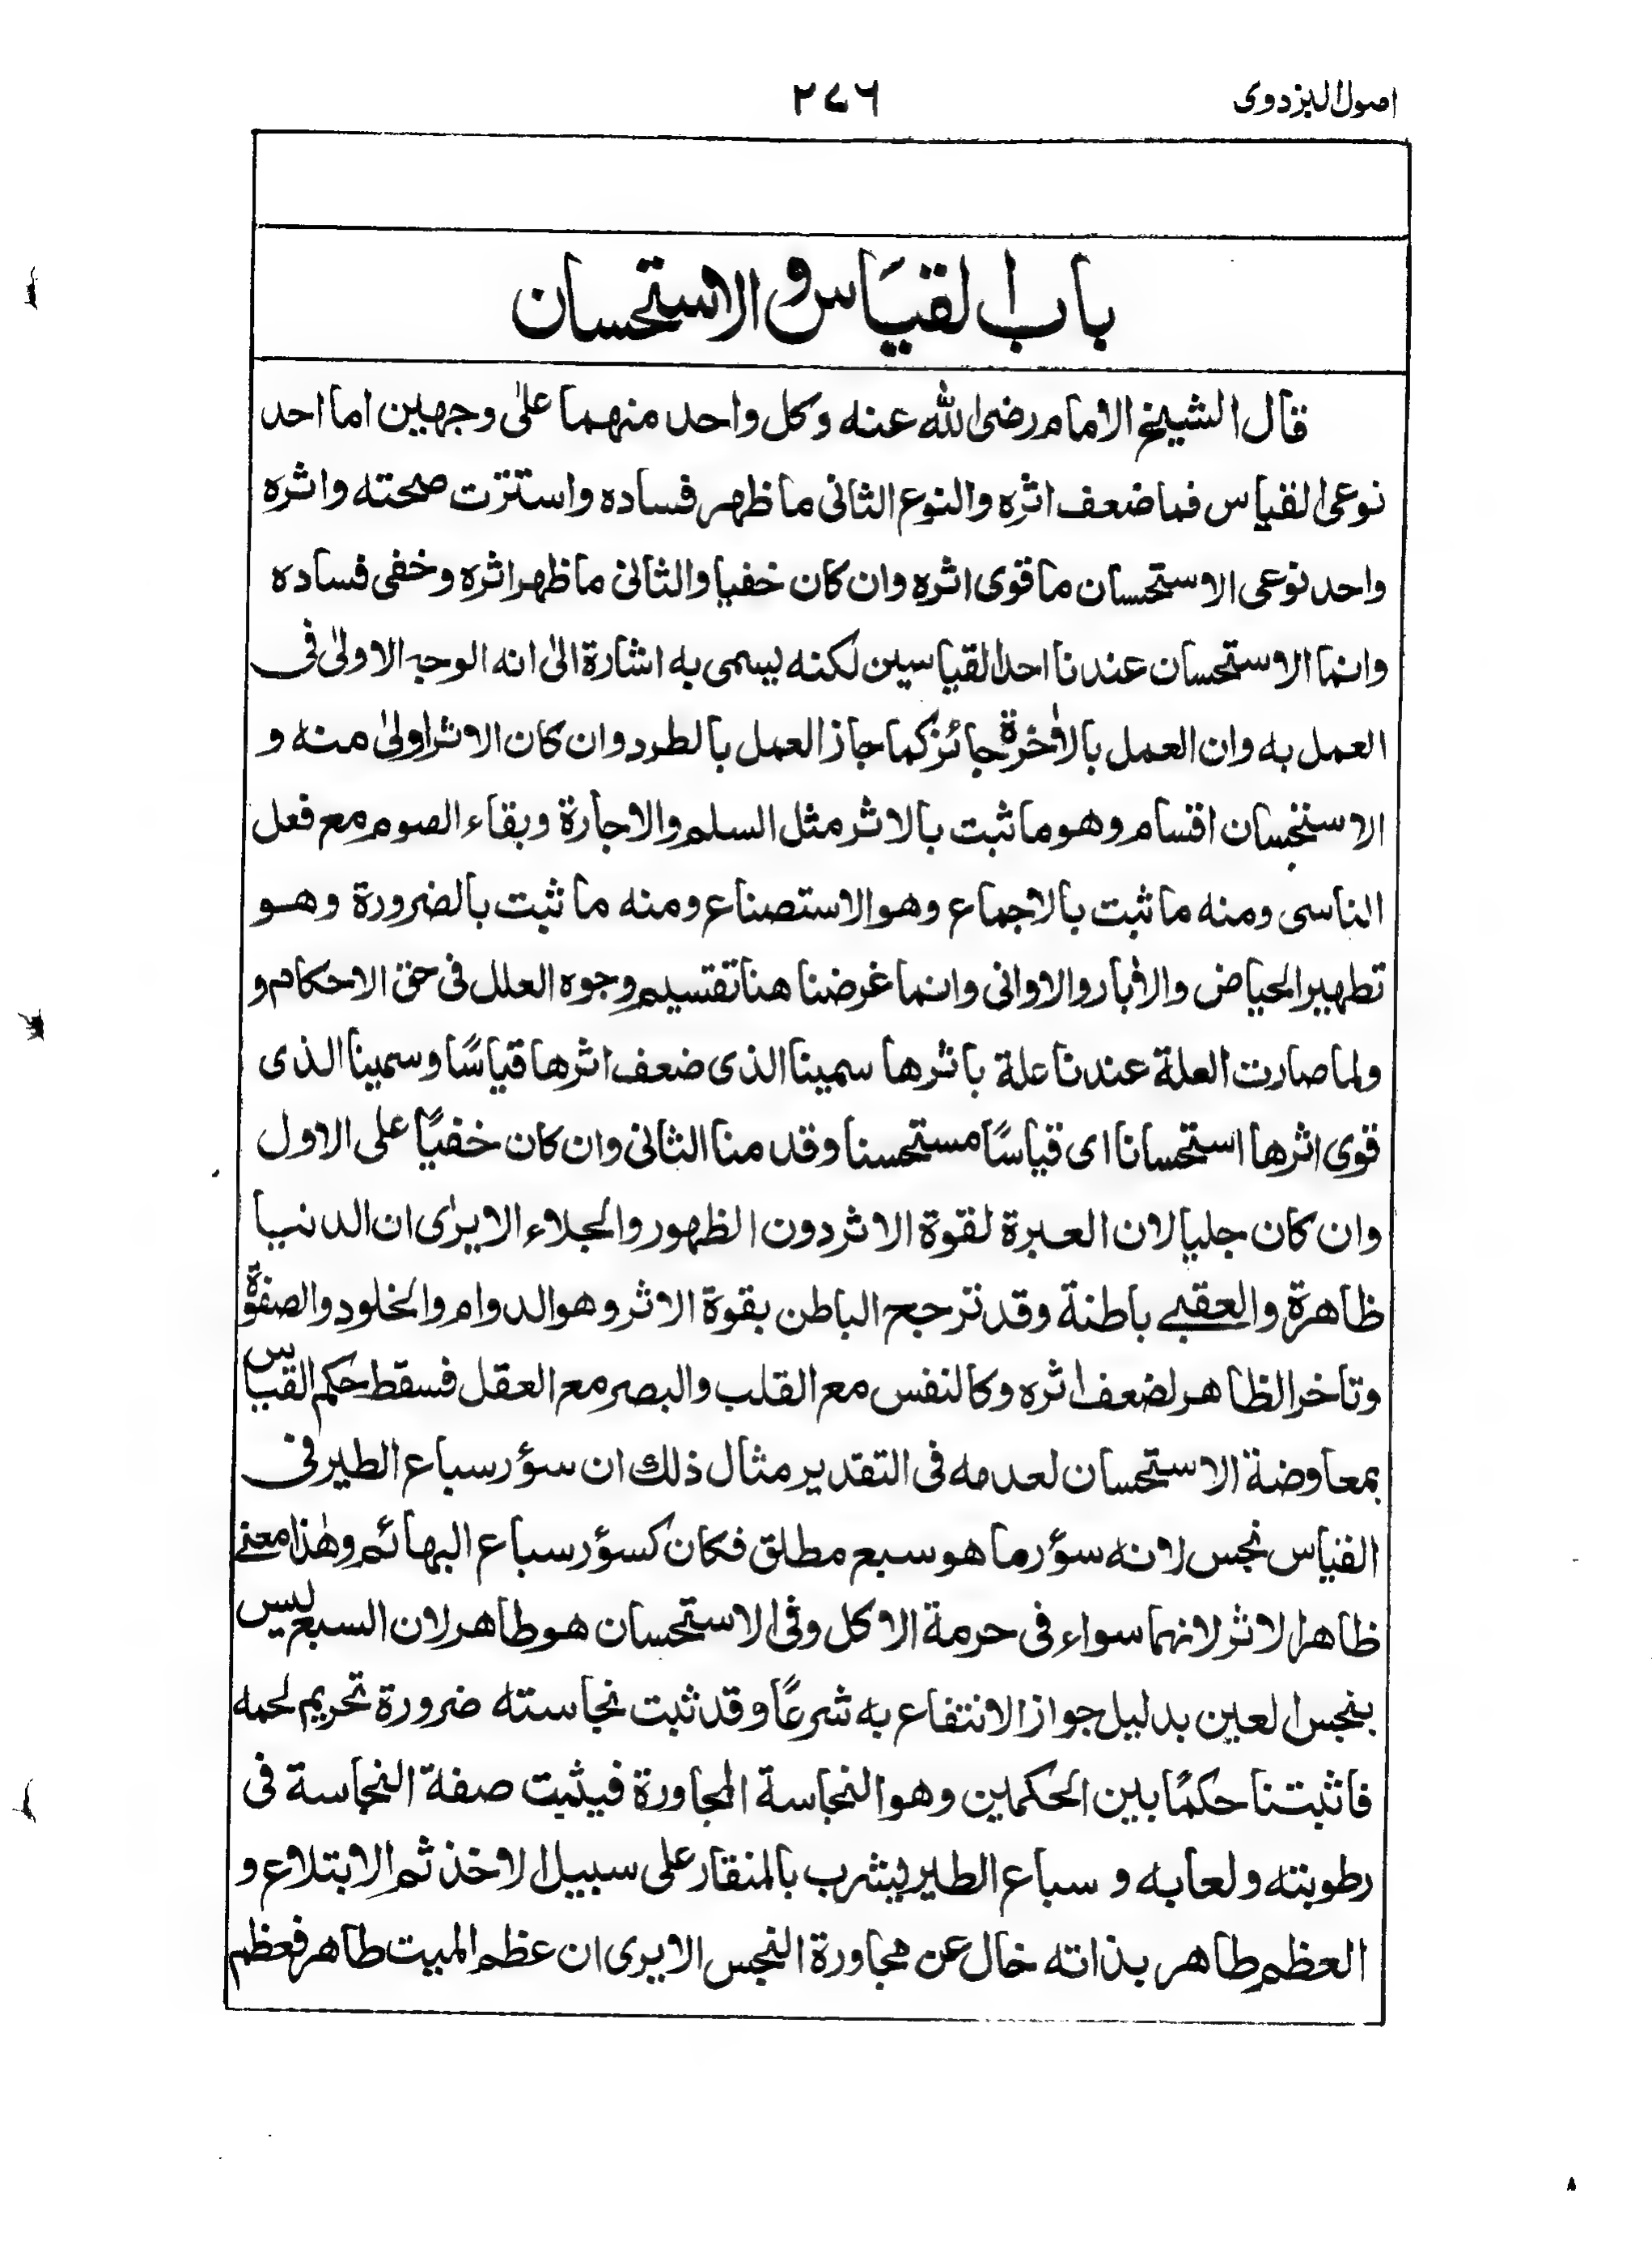 اصول البزدوی
٢٧٦
باب القیاس و الاستحسان
قال الشیخ الامام رضی الله عنه وکل واحد منهما علیٰ وجهین اما احد
نوعی القیاس فما ضعف اثره والنوع الثانی ما ظهر فساده واستترت صحته واثره
واحد نوعی الاستحسان ما قوی اثره وان کان خفیا والثانی ما ظهر اثره وخفی فساده
وانما الاستحسان عندنا احد القیاسین لکنه یسمی به اشارة الیٰ انه الوجه الاولیٰ فی
العمل به وان العمل بالاٰخرة جائز کما جاز العمل بالطرد وان کان الاثر اولیٰ منه و
الاستحسان اقسام وهو ما ثبت بالاثر مثل السلم والاجارة وبقاء الصوم مع فعل
الناسی ومنه ما ثبت بالاجماع وهو الاستصناع ومنه ما ثبت بالضرورة وهو
تطهیر الحیاض والاٰبار والاوانی وانما غرضنا هنا تقسیم وجوه العلل فی حق الاحکام و
ولما صارت العلة عندنا علة باثرها سمینا الذی ضعف اثرها قیاسًا وسمینا الذی
قوی اثرها استحسانا ای قیاسًا مستحسنا وقدمنا الثانی وان کان خفیًا علی الاول
وان کان جلیا لان العبرة لقوة الاثر دون الظهور والجلاء الا یرٰی ان الدنیا
ظاهرة والعقبے باطنة وقد ترجح الباطن بقوة الاثر وهو الدوام والخلود والصفوة
وتاخر الظاهر لضعف اثره وکالنفس مع القلب والبصر مع العقل فسقط حکم القیاس
بمعاوضة الاستحسان لعدمه فی التقدیر مثال ذلك ان سؤر سباع الطیر فی
القیاس نجس لانه سؤر ما هو سبع مطلق فکان کسؤر سباع البهائم وهٰذا معنے
ظاهر الاثر لانهما سواء فی حرمة الاکل وفی الاستحسان هو طاهر لان السبع لیس
بنجس العین بدلیل جواز الانتفاع به شرعًا وقد ثبت نجاسته ضرورة تحریم لحمه
فاثبتنا حکمًا بین الحکمین وهو النجاسة المجاورة فیثبت صفة النجاسة فی
رطوبته ولعابه و سباع الطیر یشرب بالمنقار علی سبیل الاخذ ثم الابتلاع و
العظم طاهر بذاته خال عن مجاورة النجس الا یری ان عظم المیت طاهر فعظم